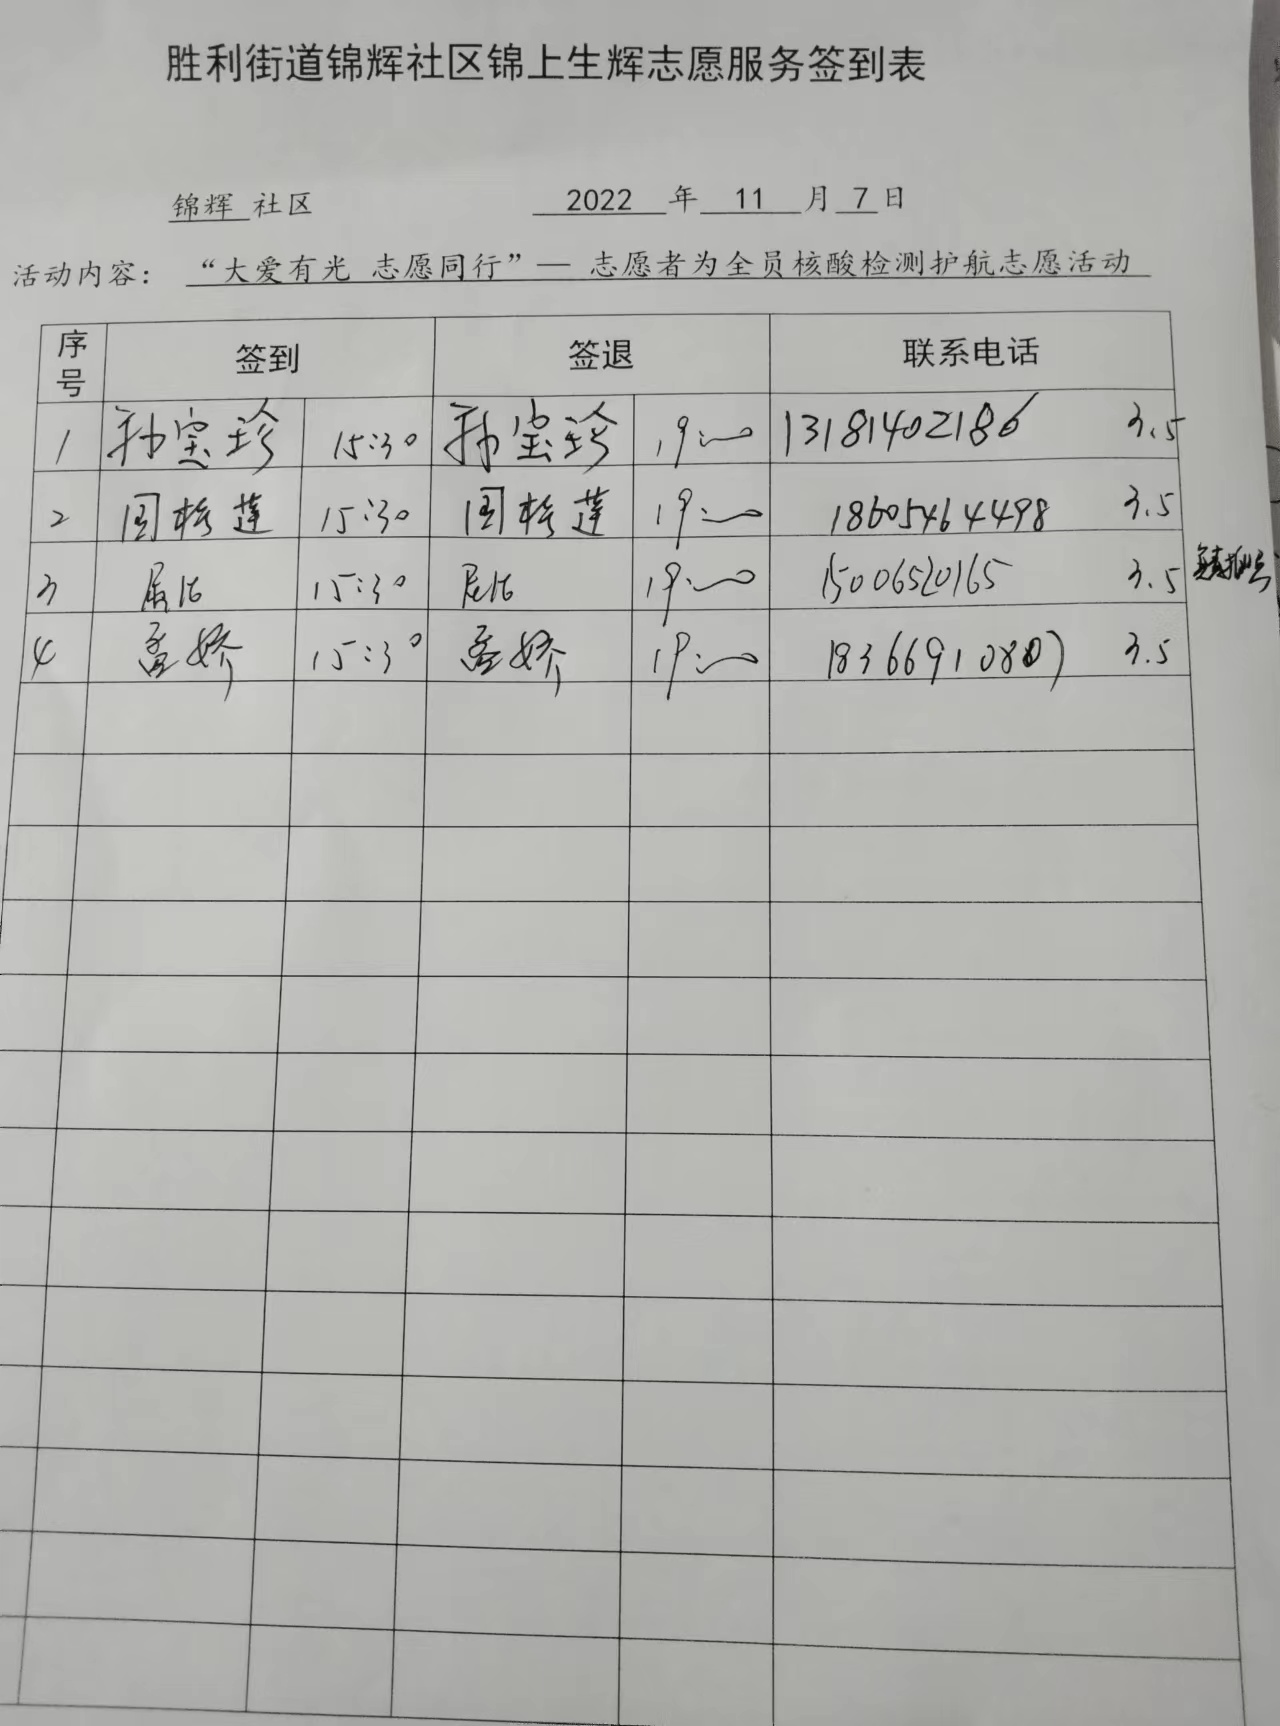 胜利街道锦辉社区锦上生辉志愿服务签到表
锦辉 社区 2022 年 11 月 7 日
活动内容： “大爱有光 志愿同行”— 志愿者为全员核酸检测护航志愿活动
序号 签到 签退 联系电话
1 孙宝珍 15:30 孙宝珍 19:00 13181402186 3.5
2 周彩莲 15:30 周彩莲 19:00 18605464498 3.5
3 15:30 19:00 15006520165 3.5
4 孟娇 15:30 孟娇 19:00 18366910807 3.5